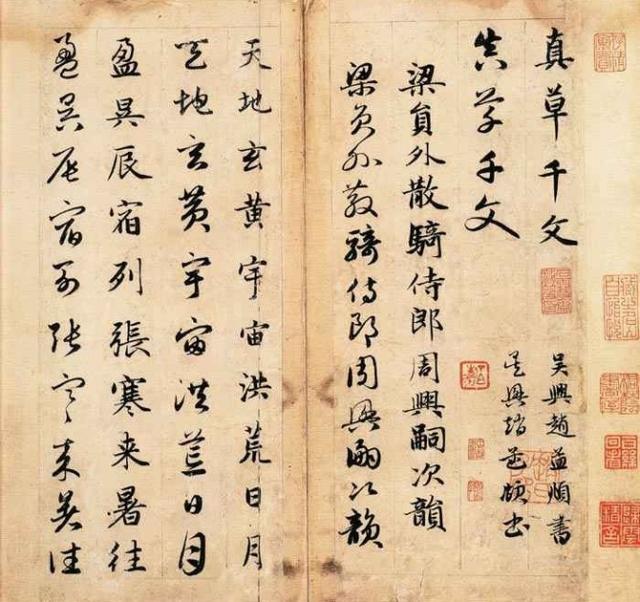 真草千文
吳興趙孟頫書
真草千文
吳興趙孟頫書
梁員外散騎侍郎周興嗣次韻
梁員外散騎侍郎周興嗣次韻
天地玄黄宇宙洪荒日月
天地玄黄宇宙洪荒日月
盈昃辰宿列張寒来暑往
盈昃辰宿列張寒来暑往